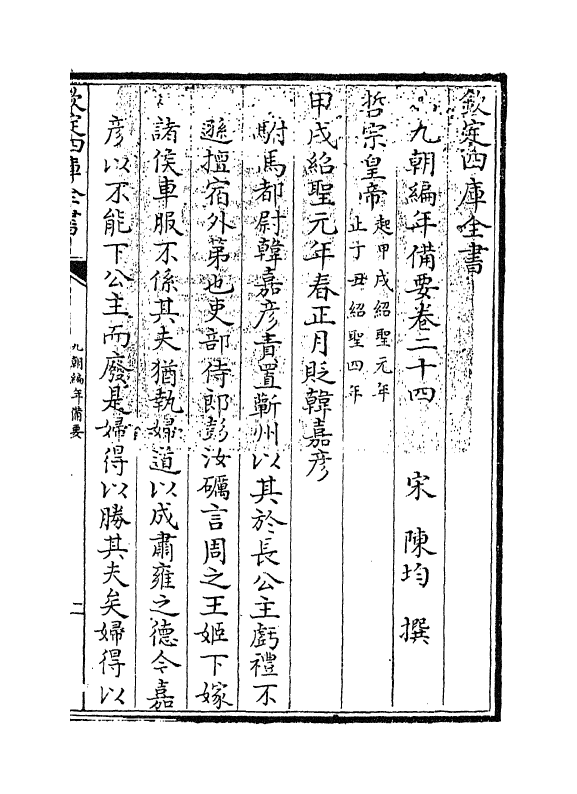 欽定四庫全書
九朝編年備要卷二十四 宋 陳均 撰
哲宗皇帝 起甲戌紹聖元年
止丁丑紹聖四年
甲戌紹聖元年春正月貶韓嘉彦
駙馬都尉韓嘉彦責置蘄州以其於長公主虧禮不
遜擅宿外第也吏部侍郎彭汝礪言周之王姬下嫁
諸侯車服不係其夫猶執婦道以成肅雍之德今嘉
彦以不能下公主而廢是婦得以勝其夫矣婦得以
欽定四庫全書
九朝編年備要
二